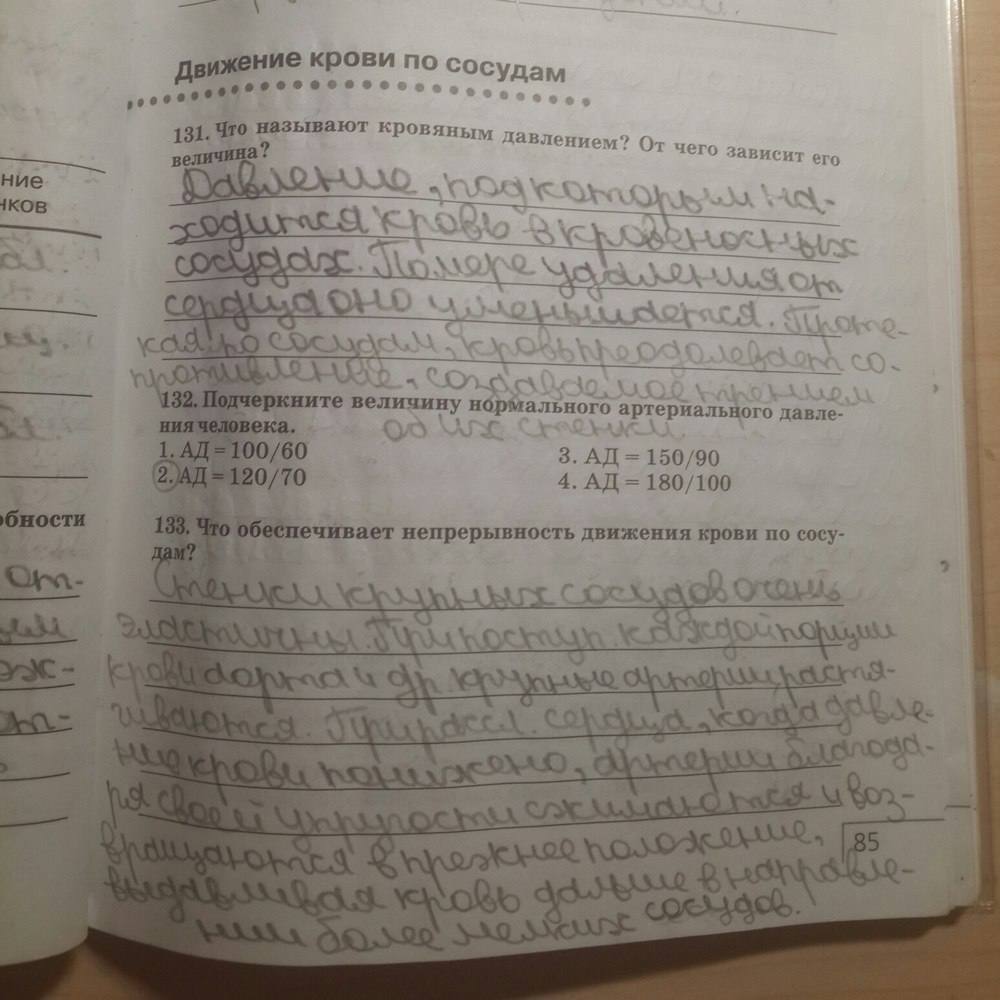 Движение крови по сосудам
131. Что называют кровяным давлением? От чего зависит его
величина?
Давление, под которым на-
ходится кровь в кровеносных
сосудах. По мере удаления от
сердца оно уменьшается. Проте-
кая по сосудам, кровь преодолевает со-
противление, создаваемое трением
об их стенки
132. Подчеркните величину нормального артериального давле-
ния человека.
1. АД = 100/60
2. АД = 120/70
3. АД = 150/90
4. АД = 180/100
133. Что обеспечивает непрерывность движения крови по сосу-
дам?
Стенки крупных сосудов очень
эластичны. При поступ. каждой порции
крови аорта и др. крупные артерии растя-
гиваются. При рассл. сердца, когда давле-
ние крови понижено, артерии благода-
ря своей упругости сжимаются и воз-
вращаются в прежнее положение,
выдавливая кровь дальше в направле-
нии более мелких сосудов.
85
ние
нков
обности
от-
ым
эж-
от-